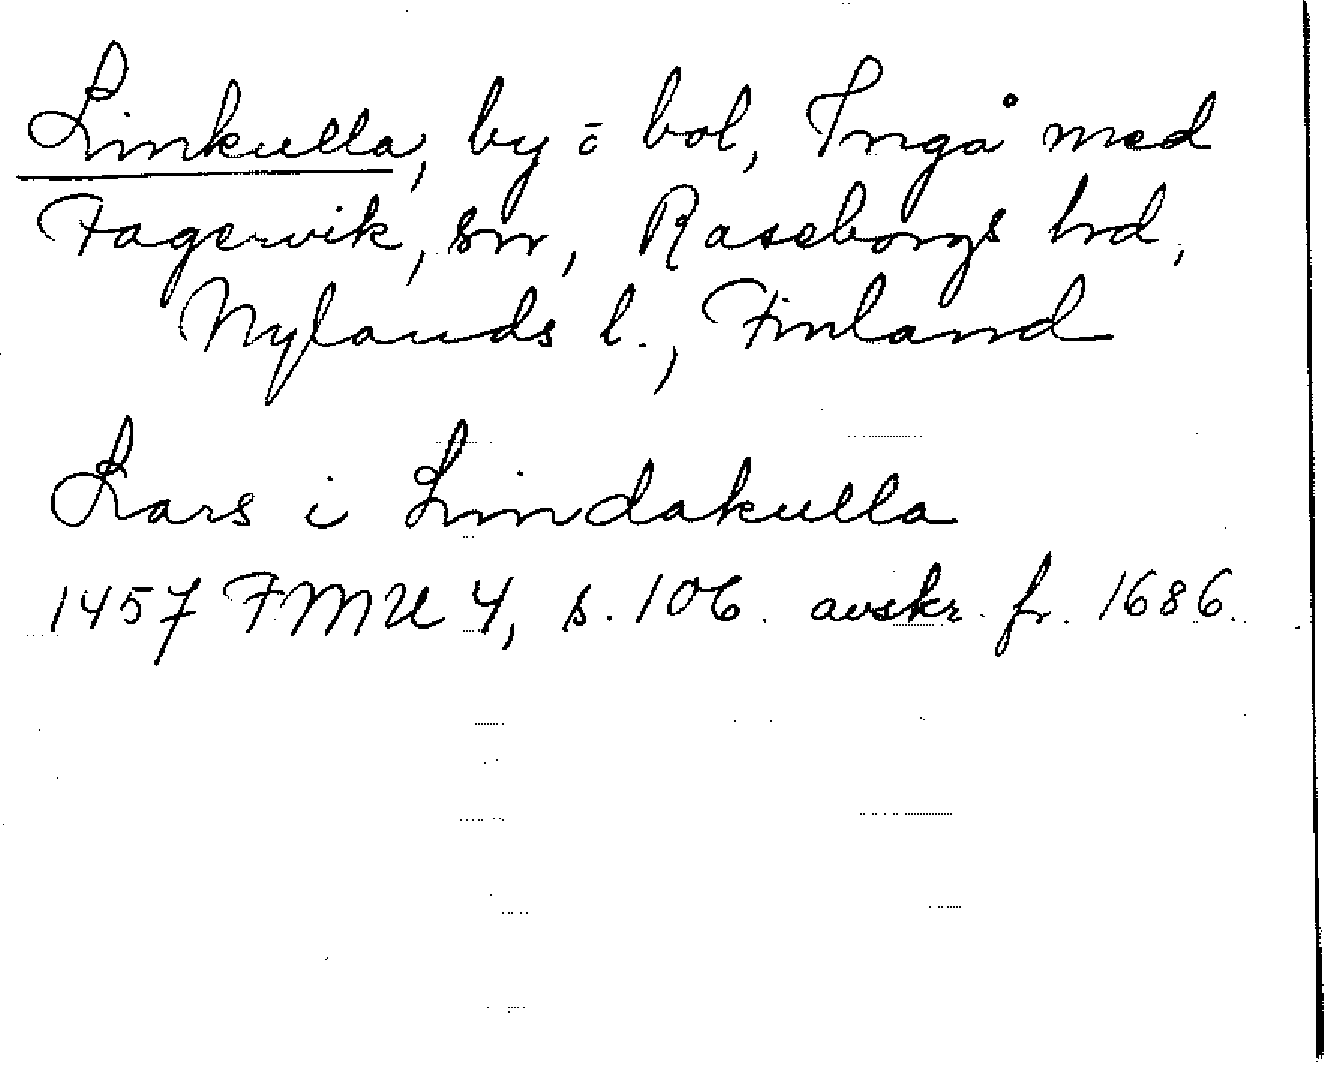 Linkulla, by o bol, Ingå med
Fagervik, sn, Raseborgs hd,
Nylands l., Finland
Lars i Lindakulla
1457 FMU 4, s. 106. avskr. fr. 1686.